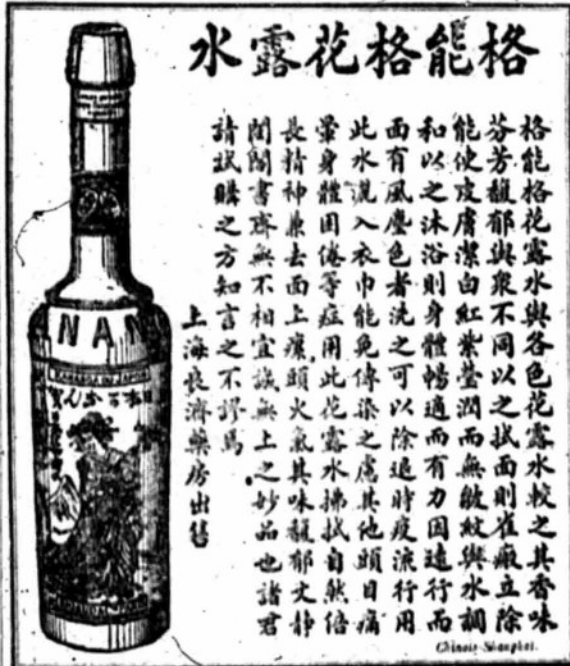 格能格花露水
格能格花露水與各色花露水較之其香味
芬芳馥郁與衆不同以之拭面則雀癍立除
能使皮膚潔白紅紫瑩潤而無皺紋與水調
和以之沐浴則身體暢適而有力因遠行而
面有風塵色者洗之可以除退時疫流行用
此水洒入衣巾能免傳染之慮其他頭目痛
暈身體困倦等症用此花露水拂拭自然倍
長精神兼去面上瘰頭火氣其味馥郁文静
閨閣書齋無不相宜誠無上之妙品也諸君
請試購之方知言之不謬焉
上海長濟藥房出售
NAN
Chinois Shanghai.